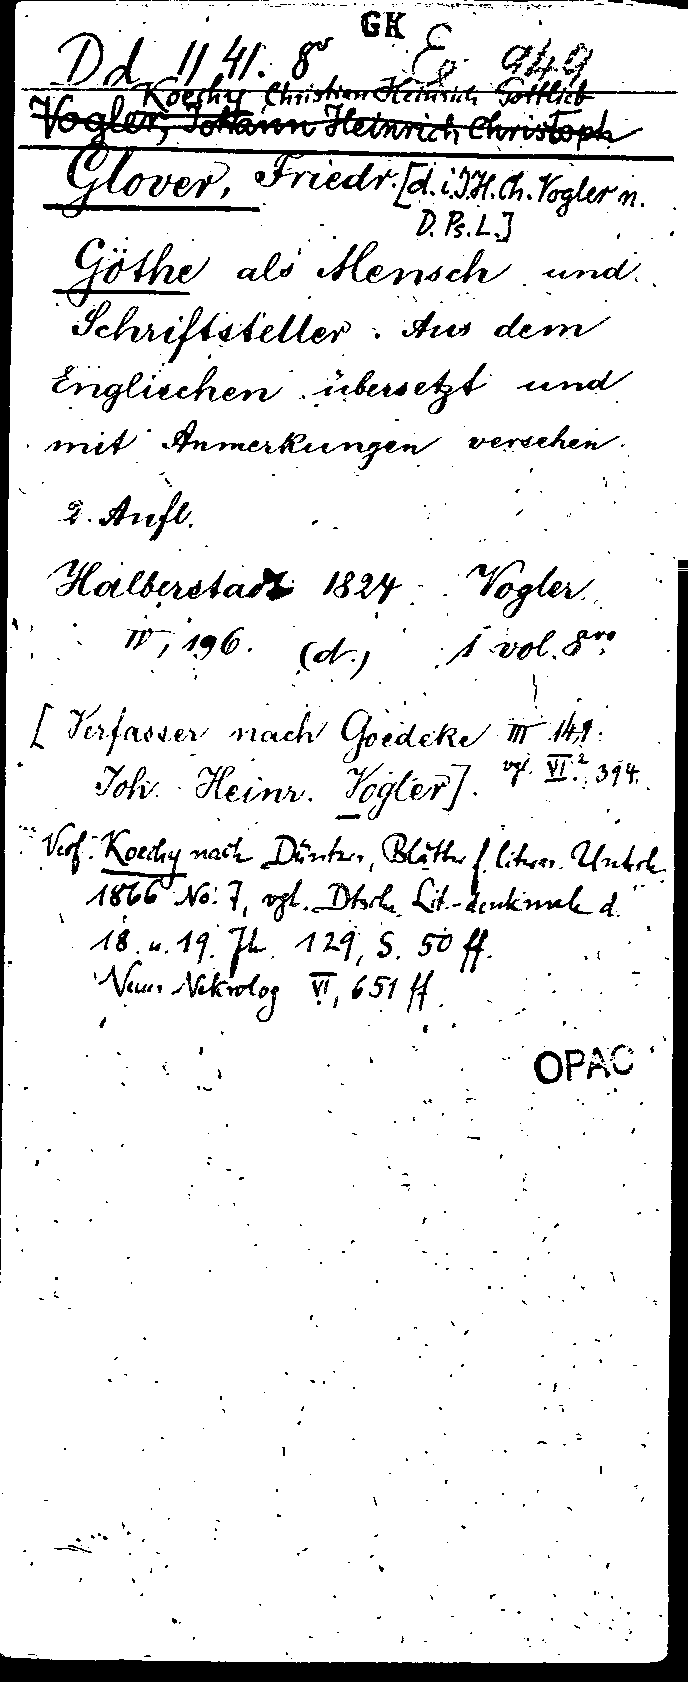 GK
Dd 1141. 8° Eg 949
Koechy Christian Heinrich Gottlieb
Vogler, Johann Heinrich Christoph
Glover, Friedr. [d. i. J.H. Ch. Vogler n.
D. Ps. L.]
Göthe als Mensch und
Schriftsteller. Aus dem
Englischen übersetzt und
mit Anmerkungen versehen.
2. Aufl.
Halberstadt 1824 Vogler
IV, 196. (d.) 1 vol. 8vo
[Verfasser nach Goedeke III 149.
Joh. Heinr. Vogler]. vgl. VI.² 394.
Verf. Koechy nach Düntzer, Blätter f. literar. Unterh.
1866 No. 7, vgl. Dtsche Lit-denkmale d.
18. u. 19. Jh. 129, S. 50 ff.
Neuer Nekrolog VI, 651 ff.
OPAC